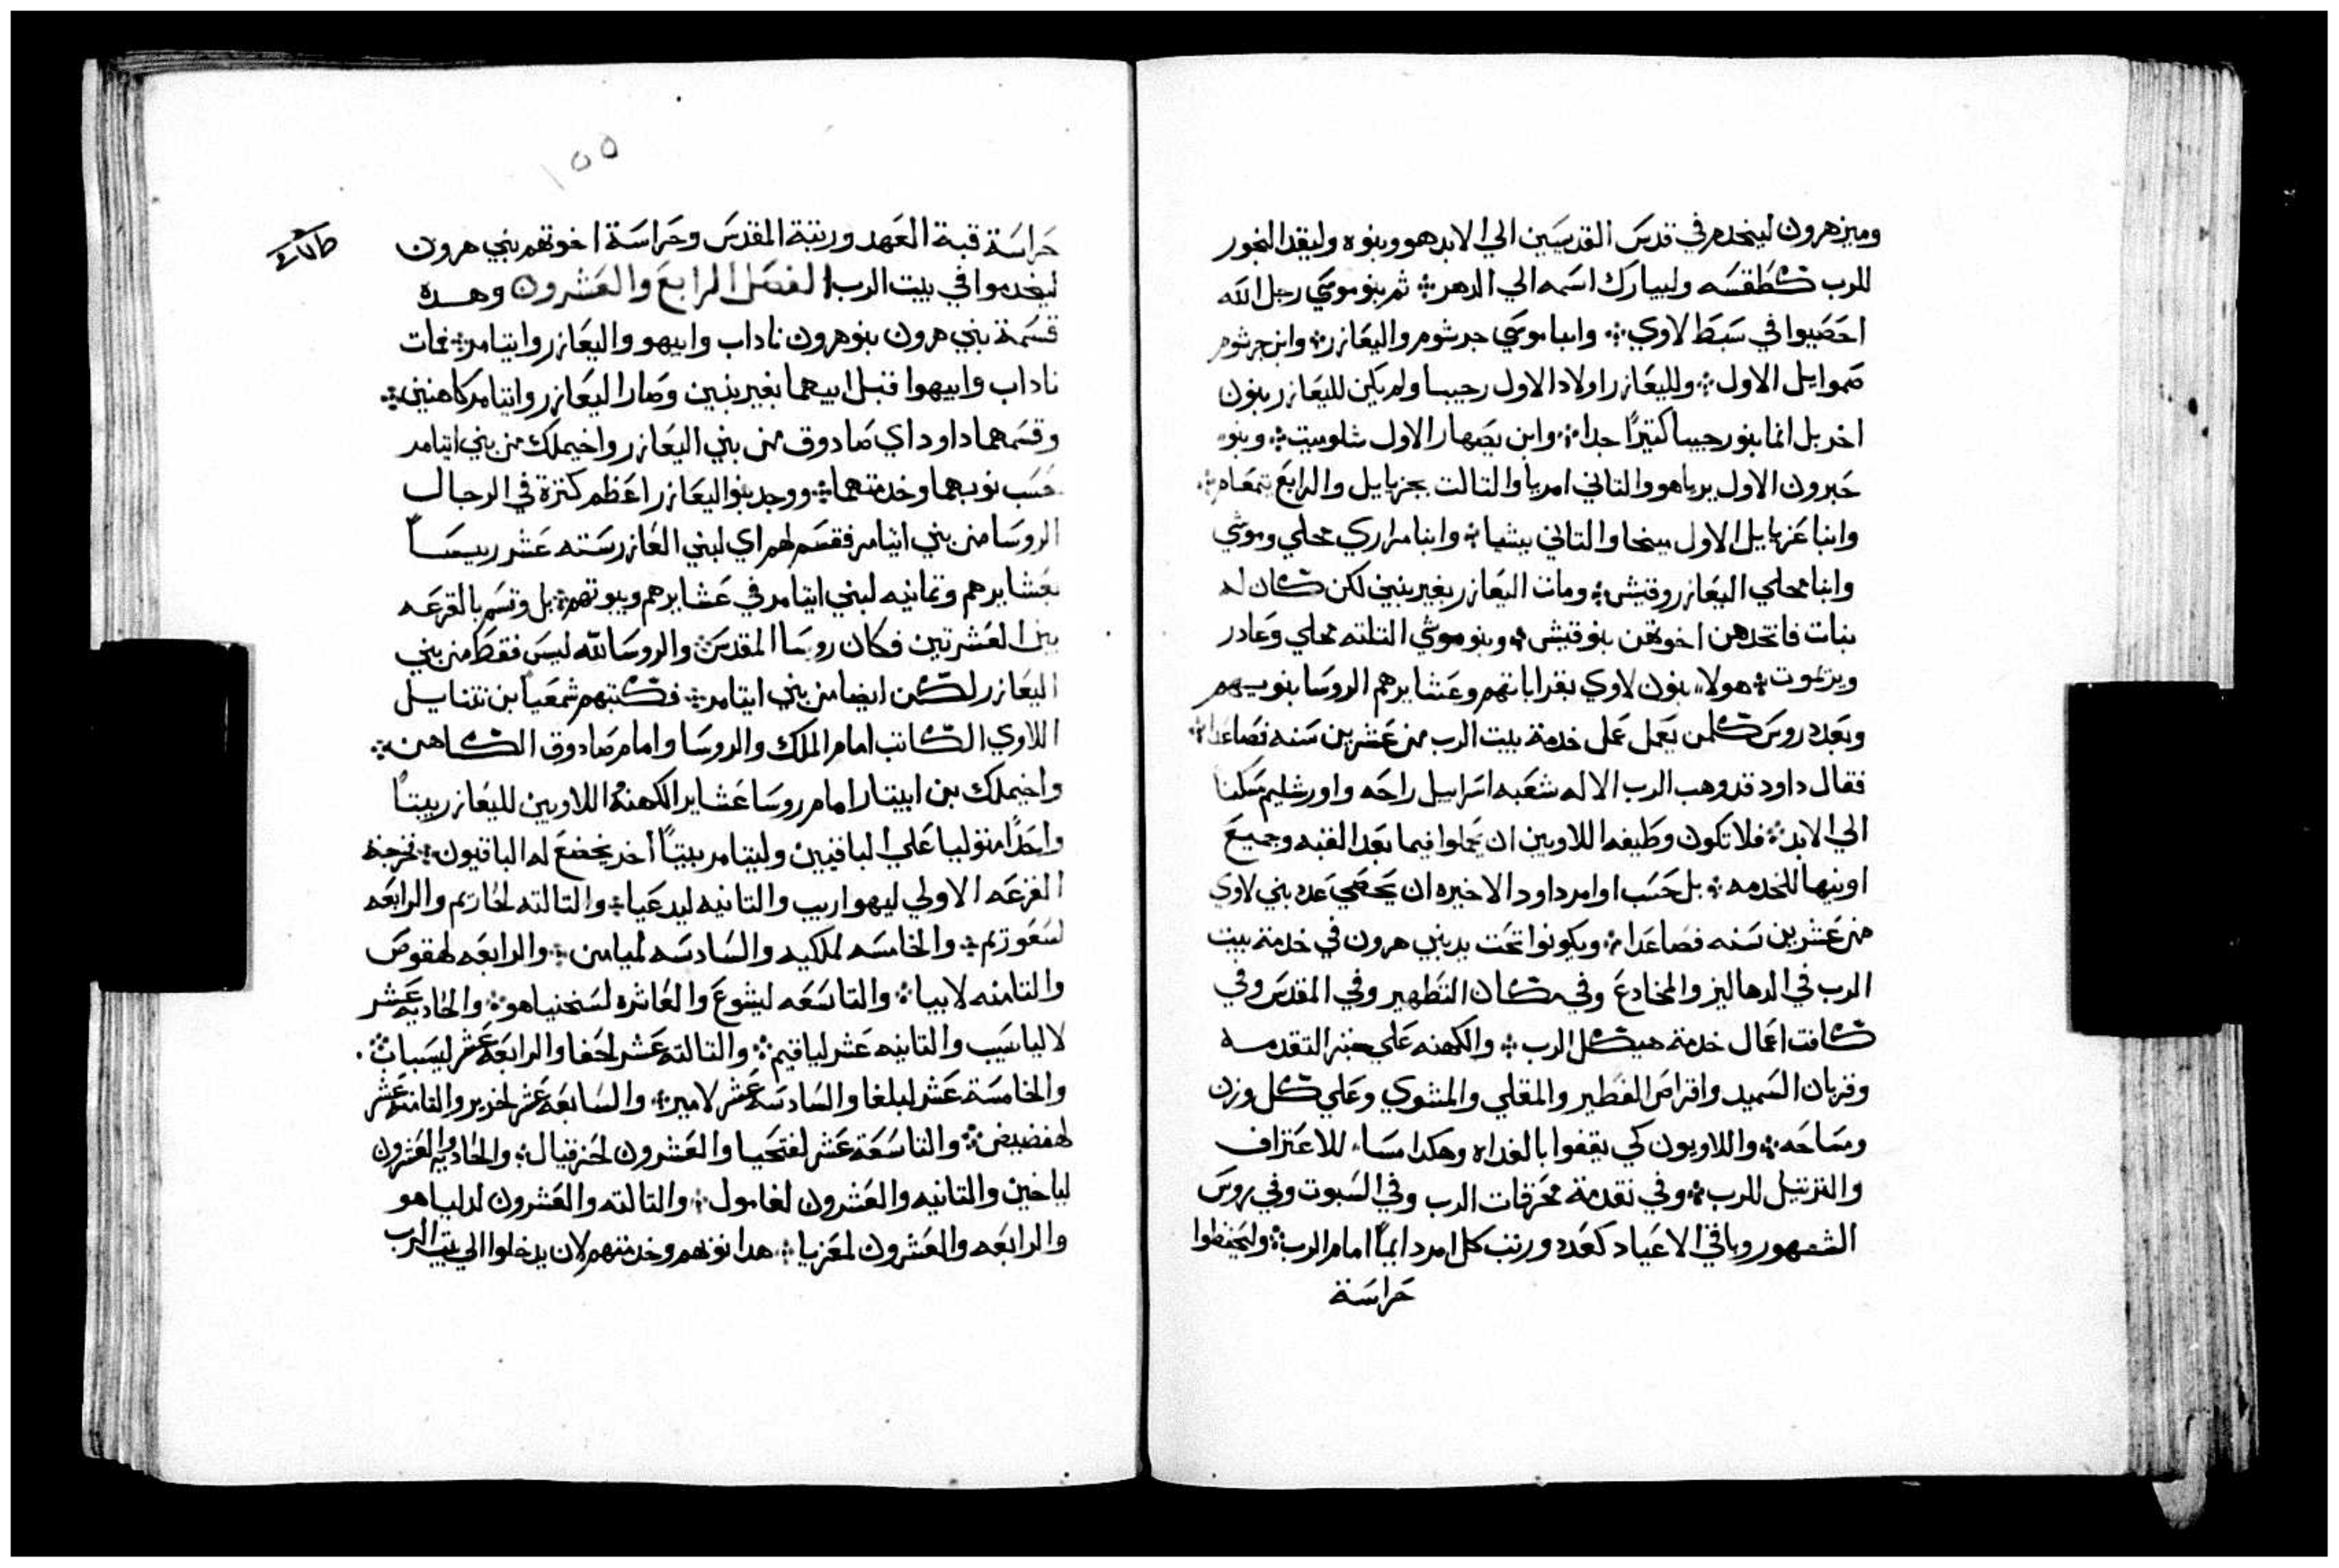 وميز هرون ليخدم في قدس القدسين الي الابد هو وبنوه وليقد البخور
للرب كطقسه وليبارك اسمه الي الدهر ثم بنو موسي رجل الله
احصيوا في سبط لاوي وابنا موسي جرشوم واليعازر وابن جرشوم
صموايل الاول ولليعازر اولاد الاول رحيبا ولم يكن لليعازر بنون
اخر بل انما بنو رحيبا كتيرًا جدا وابن يصهار الاول شلوميت وبنو
حبرون الاول يرياهو والتاني امريا والتالت يحزيايل والرابع يتمعام
وابنا عزيايل الاول ميخا والتاني يشيا وابنا مراري محلي وموشي
وابنا محلي اليعازر وقيش ومات اليعازر بغير بنين لكن كان له
بنات فاتخدهن اخوتهن بنو قيش وبنو موشي التلته محلي وعادر
ويرتموت هولاء بنون لاوي بقراباتهم وعشايرهم الروسا بنوبهم
وبعدد روس كلمن يعمل عمل خدمة بيت الرب من عشرين سنه فصاعدا
فقال داود قد وهب الرب الاله شعبه اسراييل راحه واورشليم سكنا
الي الابد فلا تكون وظيفه اللاويين ان يحملوا فيما بعد القبه وجميع
اونيها للخدمه بل حسب اوامر داود الاخيره ان يحصي عدد بني لاوي
من عشرين سنه فصاعدا ويكونوا تحت يد بني هرون في خدمة بيت
الرب في الدهاليز والمخادع وفي مكان التطهير وفي المقدس وفي
كافت اعمال خدمة هيكل الرب والكهنه علي خبز التقدمه
وقربان السميد واقراص الفطير والمقلي والمشوي وعلي كل وزن
ومساحه واللاويون كي يقفوا بالغداه وهكدا مساء للاعتراف
والترتيل للرب وفي تقدمة محرقات الرب وفي السبوت وفي روس
الشهور وباقي الاعياد كعدد ورتب كل امر دايماً امام الرب وليحفظوا
حراسة
١٥٥
حراسة قبة العهد ورتبة المقدس وحراسة اخوتهم بني هرون
ليخدموا في بيت الرب الفصل الرابع والعشرون وهده
قسمة بني هرون بنو هرون ناداب وابيهو واليعازر وايتامر فمات
ناداب وابيهوا قبل ابيهما بغير بنين وصار اليعازر وايتامر كاهنين
وقسمهما داود اي صادوق من بني اليعازر واخيملك من بني ايتامر
حسب نوبهما وخدمتهما ووجد بنو اليعازر اعظم كترة في الرجال
الروسا من بني ايتامر فقسم لهم اي لبني العازر سته عشر رييساً
بعشايرهم وتمانيه لبني ايتامر في عشايرهم وبيوتهم بل وقسم بالقرعه
بين العشرتين فكان روسا المقدس والروسا لله ليس فقط من بني
اليعازر لكن ايضا من بني ايتامر فكتبهم شمعيا بن نتنايل
اللاوي الكاتب امام الملك والروسا وامام صادوق الكاهن
واخيملك بن ابيتار امام روسا عشاير الكهنه اللاويين لليعازر بيتاً
واحدًا متوليا علي الباقيين وليتامر بيتاً أخر يخضع له الباقيون فخرجة
القرعه الاولي ليهواريب والتانيه ليدعيا والتالته لحاريم والرابعه
لسعوريم والخامسه لملكيه والسادسه لميامن والرابعه لهقوص
والتامنه لابيا والتاسعه ليشوع والعاشره لسخنياهو والحاديه عشر
لالياسيب والتانيه عشر لياقيم والتالته عشر لحفا والرابعه عشر ليسباب
والخامسة عشر لبلغا والسادسه عشر لامير والسابعه عشر لخزير والتامنه عشر
لهفضيض والتاسعة عشر لفتحيا والعشرون لحزقيال والحاديه والعشرون
لياخين والتانيه والعشرون لغامول والتالته والعشرون لدلياهو
والرابعه والعشرون لمعزيا هدا نوبهم وخدمتهم لان يدخلوا الي بيت الرب